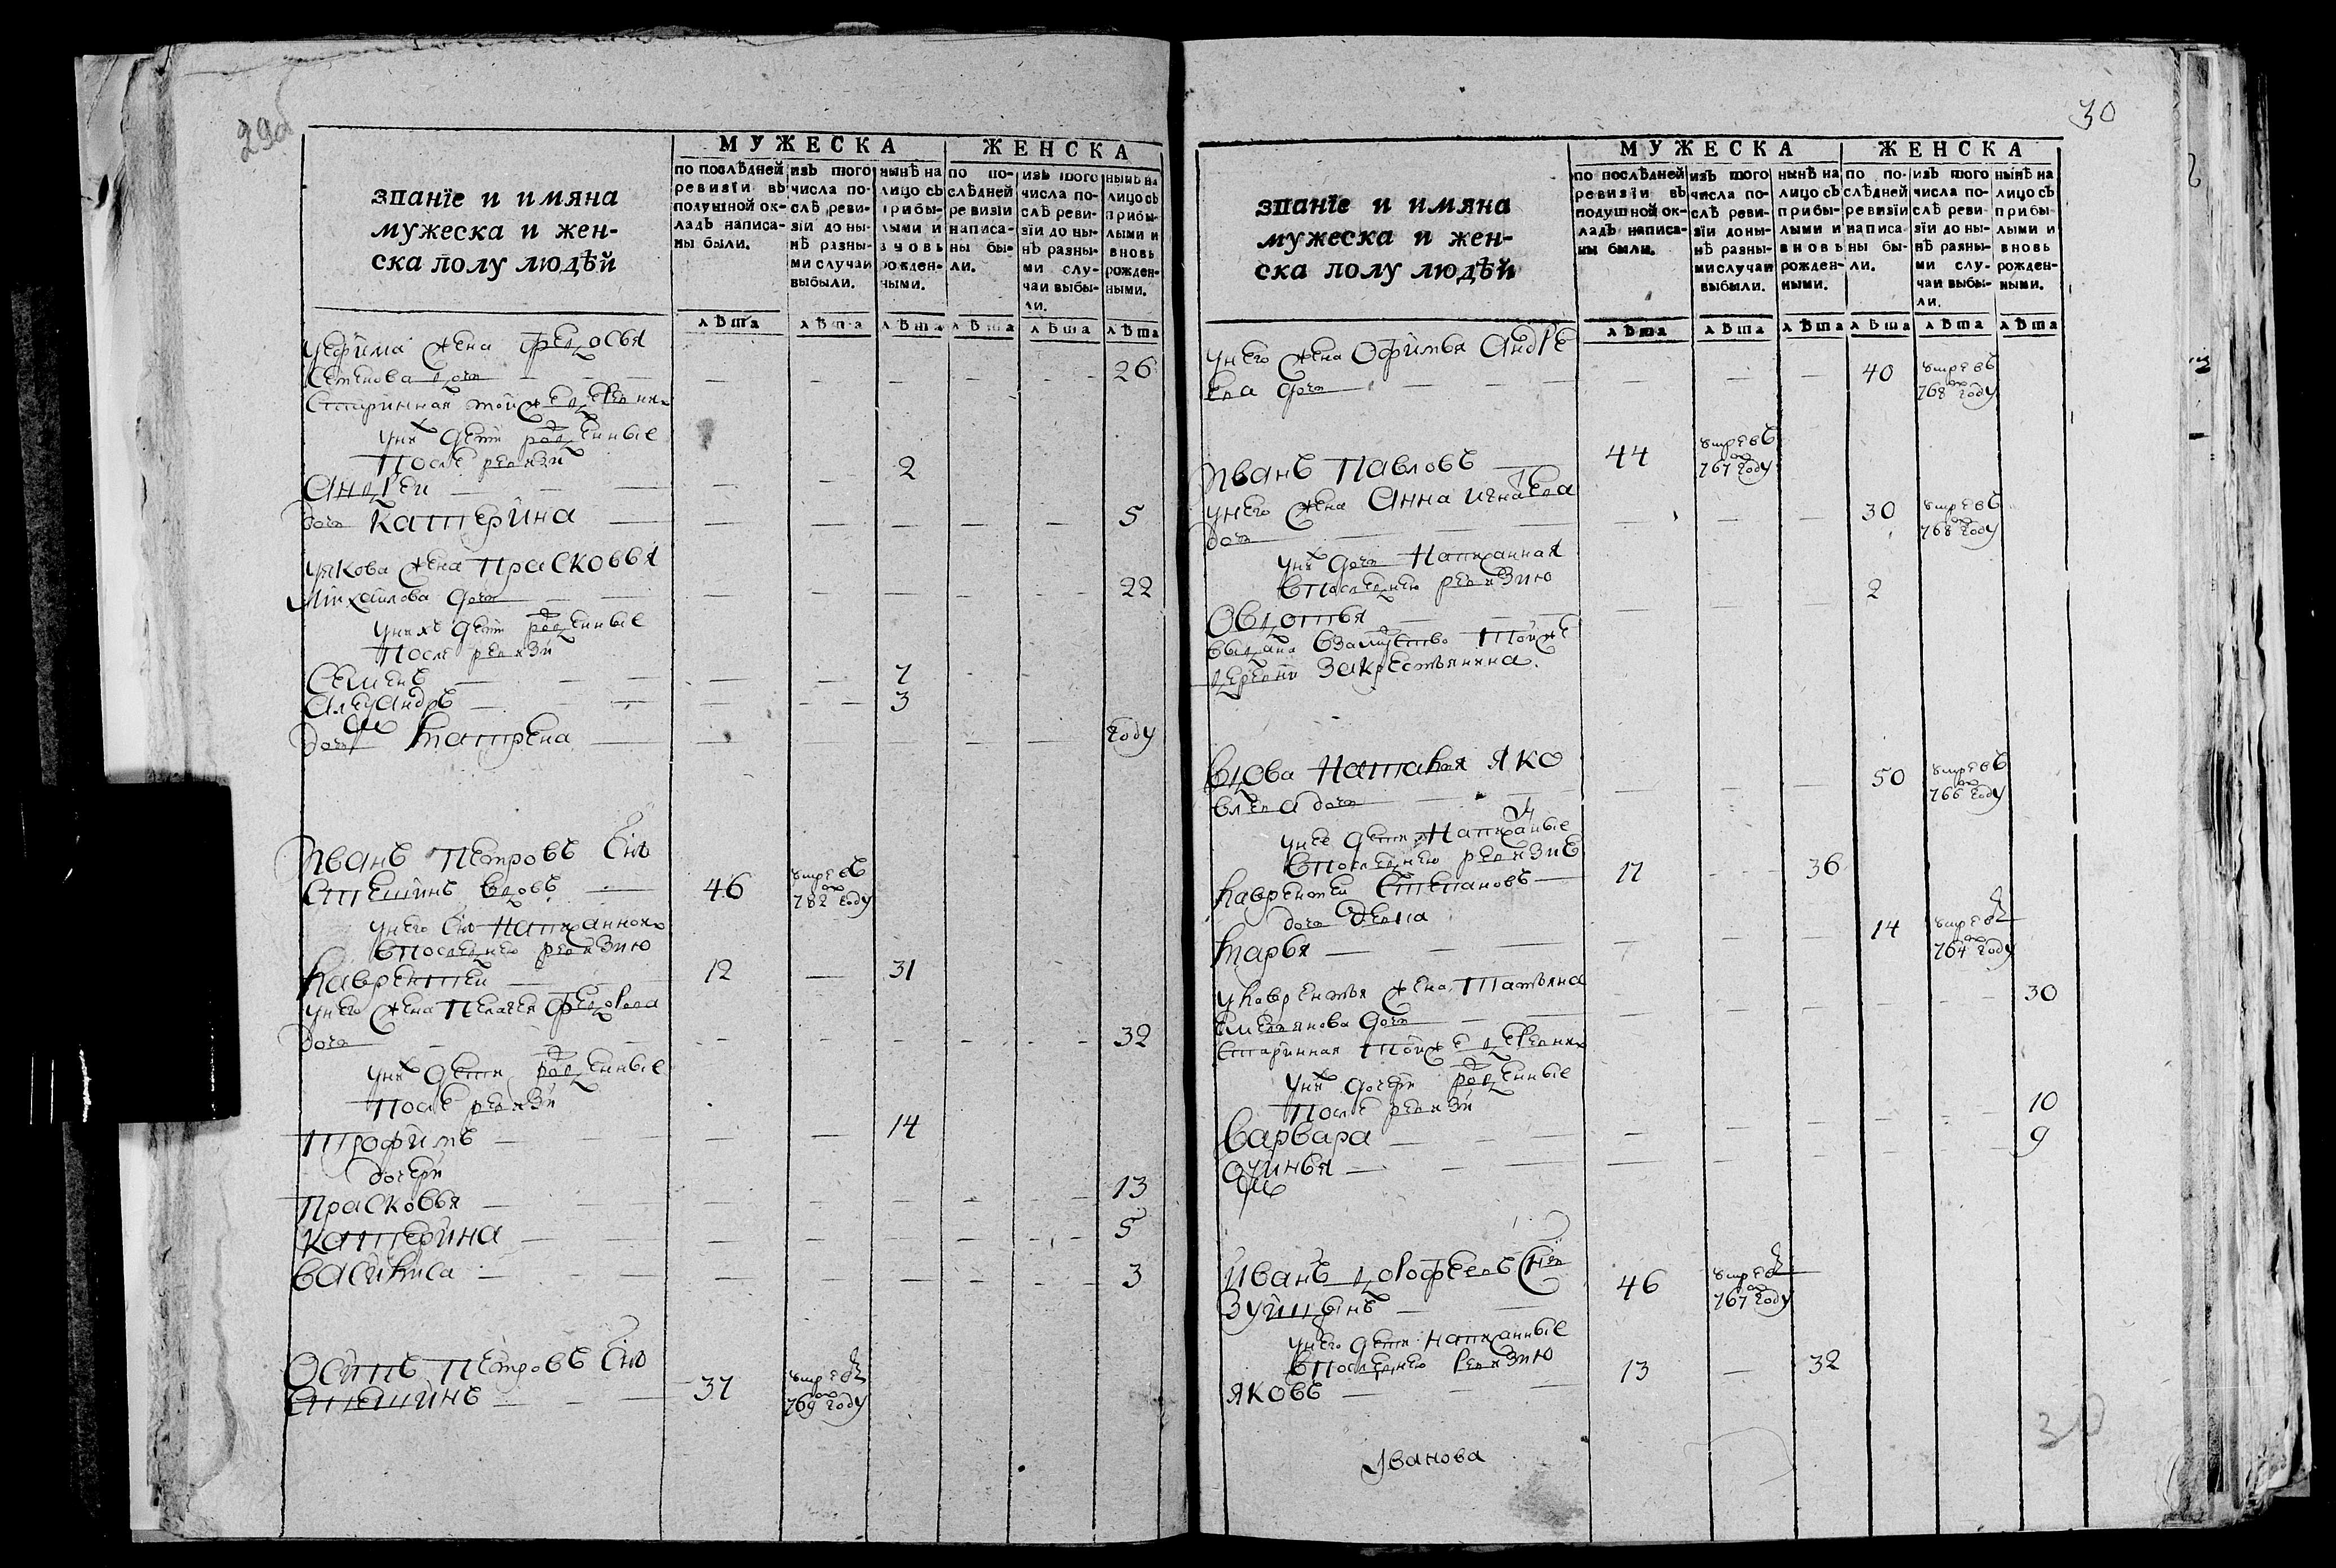 29об
МУЖЕСКА ЖЕНСКА
званїе и имяна
мужеска и жен-
ска полу людѣй
по послѣдней ревизїи въ подушной ок-ладъ написа-ны были.
изъ того числа по-слѣ реви-зїи до ны-нѣ разны-ми случаи выбыли.
нынѣ на лицо съ прибы-лыми и вновь рожден-ными.
по по-слѣдней ревизїи написа-ны бы-ли.
изъ того числа по-слѣ реви-зїи до ны-нѣ разны-ми слу-чаи выбы-ли.
нынѣ на лицо съ прибы-лыми и вновь рожден-ными.
лѣта лѣта лѣта лѣта лѣта лѣта
уефима жена федосья
семенова дочь 26
старинная тойже деревни
уних дети рожденные
после ревизи
Андреи 2
дочь катерина 5
уякова жена Прасковья
михаилова дочь 22
унихъ дети рожденные
после ревизи
семенъ 7
александръ 3
дочь матрена году
Иванъ Петровъ снъ
стешинъ вдовъ 46 умре въ 782 году
унего снъ написанной
впоследнею ревизию
лаврентеи 12 31
унего жена Пелагея федорова
дочь 32
унихъ дети рожденные
после ревизи
трофимъ 14
дочери
Прасковья 13
катерина 5
василиса 3
Осипъ Петровъ снъ
стешинъ 37 умре въ 769 году
30
МУЖЕСКА ЖЕНСКА
званїе и имяна
мужеска и жен-
ска полу людѣй
по послѣдней ревизїи въ подушной ок-ладъ написа-ны были.
изъ того числа по-слѣ реви-зїи до ны-нѣ разны-ми случаи выбыли.
нынѣ на лицо съ прибы-лыми и вновь рожден-ными.
по по-слѣдней ревизїи написа-ны бы-ли.
изъ того числа по-слѣ реви-зїи до ны-нѣ разны-ми слу-чаи выбы-ли.
нынѣ на лицо съ прибы-лыми и вновь рожден-ными.
лѣта лѣта лѣта лѣта лѣта лѣта
унего жена Офимья Андре
ева дочь 40 умре въ 768 году
Иванъ Павловъ 44 умре въ 767 году
унего жена Анна игнатева
дочь 30 умре въ 768 году
унихъ дочь написанная
впоследнею ревизию
Овдотья 2
выдана взамужство тойже
деревни закрестьянина
вдова наталья яко
влева дочь 50 умре въ 766 году
унее дети написаные
впоследнею ревизие
лаврентеи степановъ 17 36
дочь девка
марья 14 умре въ 764 году
улаврентья жена Татьяна 30
емельянова дочь
старинная тойже деревни
унихъ дочери рожденные
после ревизи
варвара 10
9
Иванъ дорофеевъ снъ
зуйщынъ 46 умре въ 767 году
унего дети написанные
впоследнею ревизию
яковъ 13 32
30
Иванова